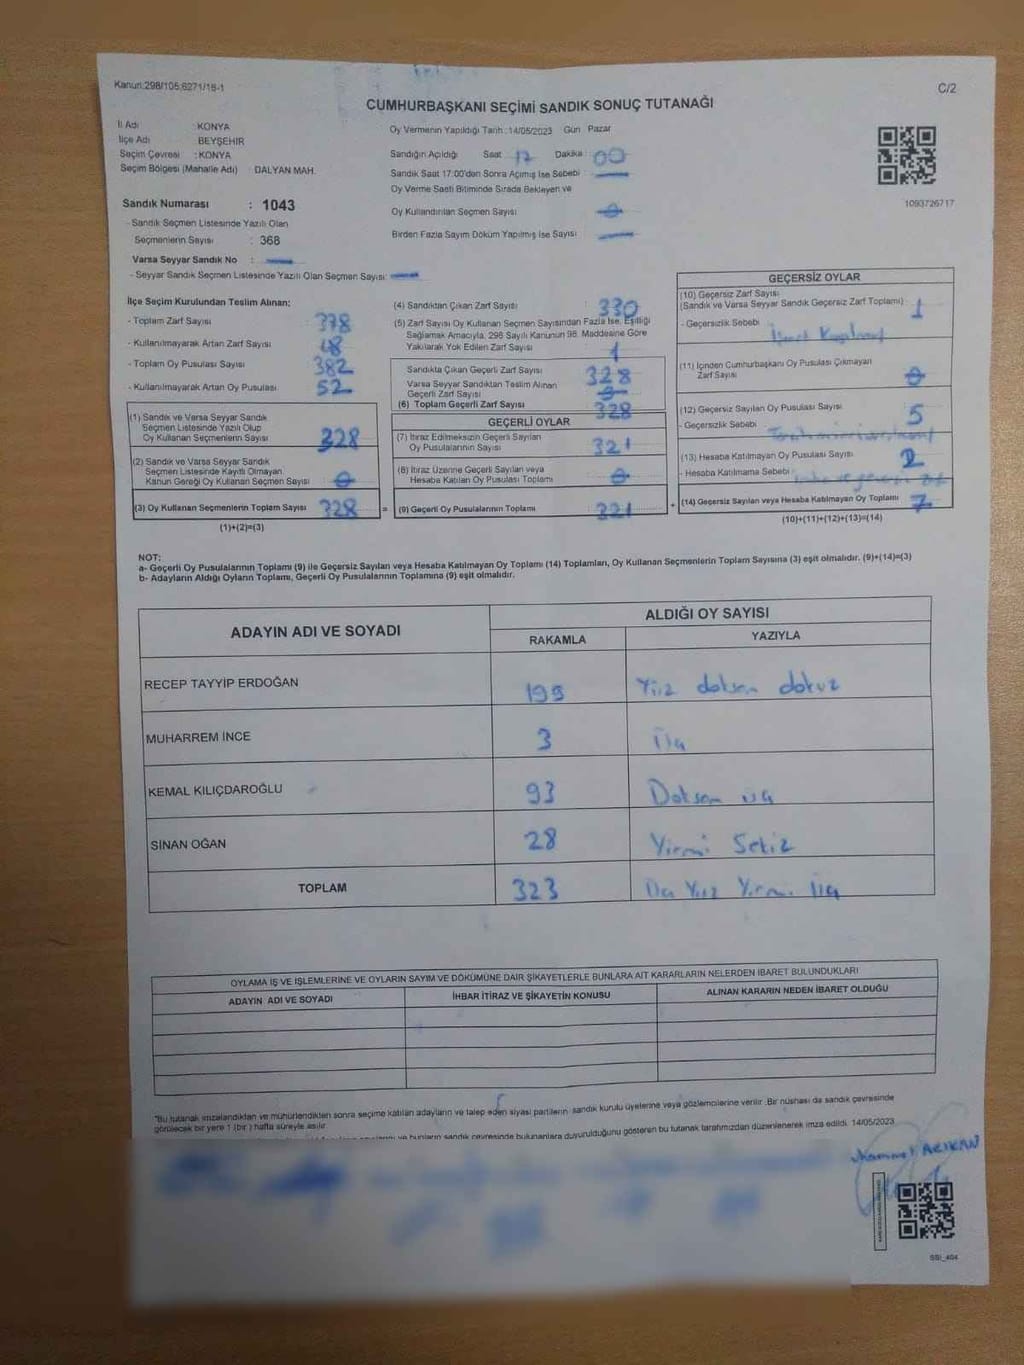 Kanun:298/105,6271/18-1
C/2
CUMHURBAŞKANI SEÇİMİ SANDIK SONUÇ TUTANAĞI
İl Adı : KONYA
İlçe Adı : BEYŞEHİR
Seçim Çevresi : KONYA
Seçim Bölgesi (Mahalle Adı) : DALYAN MAH.
Oy Vermenin Yapıldığı Tarih : 14/05/2023 Gün : Pazar
Sandığın Açıldığı Saat : 17 Dakika : 00
Sandık Saat 17:00'den Sonra Açımış İse Sebebi : —
Oy Verme Saati Bitiminde Sırada Bekleyen ve
Oy Kullandırılan Seçmen Sayısı : 0
Birden Fazla Sayım Döküm Yapılmış İse Sayısı : —
1093726717
Sandık Numarası : 1043
- Sandık Seçmen Listesinde Yazılı Olan
Seçmenlerin Sayısı : 368
Varsa Seyyar Sandık No : —
- Seyyar Sandık Seçmen Listesinde Yazılı Olan Seçmen Sayısı: —
İlçe Seçim Kurulundan Teslim Alınan:
- Toplam Zarf Sayısı : 378
- Kullanılmayarak Artan Zarf Sayısı : 48
- Toplam Oy Pusulası Sayısı : 382
- Kullanılmayarak Artan Oy Pusulası : 52
(1) Sandık ve Varsa Seyyar Sandık
Seçmen Listesinde Yazılı Olup
Oy Kullanan Seçmenlerin Sayısı : 328
(2) Sandık ve Varsa Seyyar Sandık
Seçmen Listesinde Kayıtlı Olmayan,
Kanun Gereği Oy Kullanan Seçmen Sayısı : 0
(3) Oy Kullanan Seçmenlerin Toplam Sayısı : 328
(1)+(2)=(3)
(4) Sandıktan Çıkan Zarf Sayısı : 330
(5) Zarf Sayısı Oy Kullanan Seçmen Sayısından Fazla İse, Eşitliği
Sağlamak Amacıyla, 298 Sayılı Kanunun 98. Maddesine Göre
Yakılarak Yok Edilen Zarf Sayısı : 1
Sandıkta Çıkan Geçerli Zarf Sayısı : 328
Varsa Seyyar Sandıktan Teslim Alınan
Geçerli Zarf Sayısı : 0
(6) Toplam Geçerli Zarf Sayısı : 328
GEÇERLİ OYLAR
(7) İtiraz Edilmeksizin Geçerli Sayılan
Oy Pusulalarının Sayısı : 321
(8) İtiraz Üzerine Geçerli Sayılan veya
Hesaba Katılan Oy Pusulası Toplamı : 0
= (9) Geçerli Oy Pusulalarının Toplamı : 321
GEÇERSİZ OYLAR
(10) Geçersiz Zarf Sayısı
(Sandık ve Varsa Seyyar Sandık Geçersiz Zarf Toplamı) : 1
- Geçersizlik Sebebi :
(11) İçinden Cumhurbaşkanı Oy Pusulası Çıkmayan
Zarf Sayısı : 0
(12) Geçersiz Sayılan Oy Pusulası Sayısı : 5
- Geçersizlik Sebebi :
(13) Hesaba Katılmayan Oy Pusulası Sayısı : 2
- Hesaba Katılmama Sebebi :
+ (14) Geçersiz Sayılan veya Hesaba Katılmayan Oy Toplamı : 7
(10)+(11)+(12)+(13)=(14)
NOT:
a- Geçerli Oy Pusulalarının Toplamı (9) ile Geçersiz Sayılan veya Hesaba Katılmayan Oy Toplamı (14) Toplamları, Oy Kullanan Seçmenlerin Toplam Sayısına (3) eşit olmalıdır. (9)+(14)=(3)
b- Adayların Aldığı Oyların Toplamı, Geçerli Oy Pusulalarının Toplamına (9) eşit olmalıdır.
ADAYIN ADI VE SOYADI
ALDIĞI OY SAYISI
RAKAMLA YAZIYLA
RECEP TAYYİP ERDOĞAN 199 Yüz doksan dokuz
MUHARREM İNCE 3 Üç
KEMAL KILIÇDAROĞLU 93 Doksan üç
SİNAN OĞAN 28 Yirmi Sekiz
TOPLAM 323 Üç Yüz Yirmi Üç
OYLAMA İŞ VE İŞLEMLERİNE VE OYLARIN SAYIM VE DÖKÜMÜNE DAİR ŞİKAYETLERLE BUNLARA AİT KARARLARIN NELERDEN İBARET BULUNDUKLARI
ADAYIN ADI VE SOYADI İHBAR İTİRAZ VE ŞİKAYETİN KONUSU ALINAN KARARIN NEDEN İBARET OLDUĞU
*Bu tutanak imzalandıktan ve mühürlendikten sonra seçime katılan adayların ve talep eden siyasi partilerin sandık kurulu üyelerine veya gözlemcilerine verilir. Bir nüshası da sandık çevresinde
görülecek bir yere 1 (bir) hafta süreyle asılır.
ve bunların sandık çevresinde bulunanlara duyurulduğunu gösteren bu tutanak tarafımızdan düzenlenerek imza edildi. 14/05/2023
ARIKAN
SSI_404